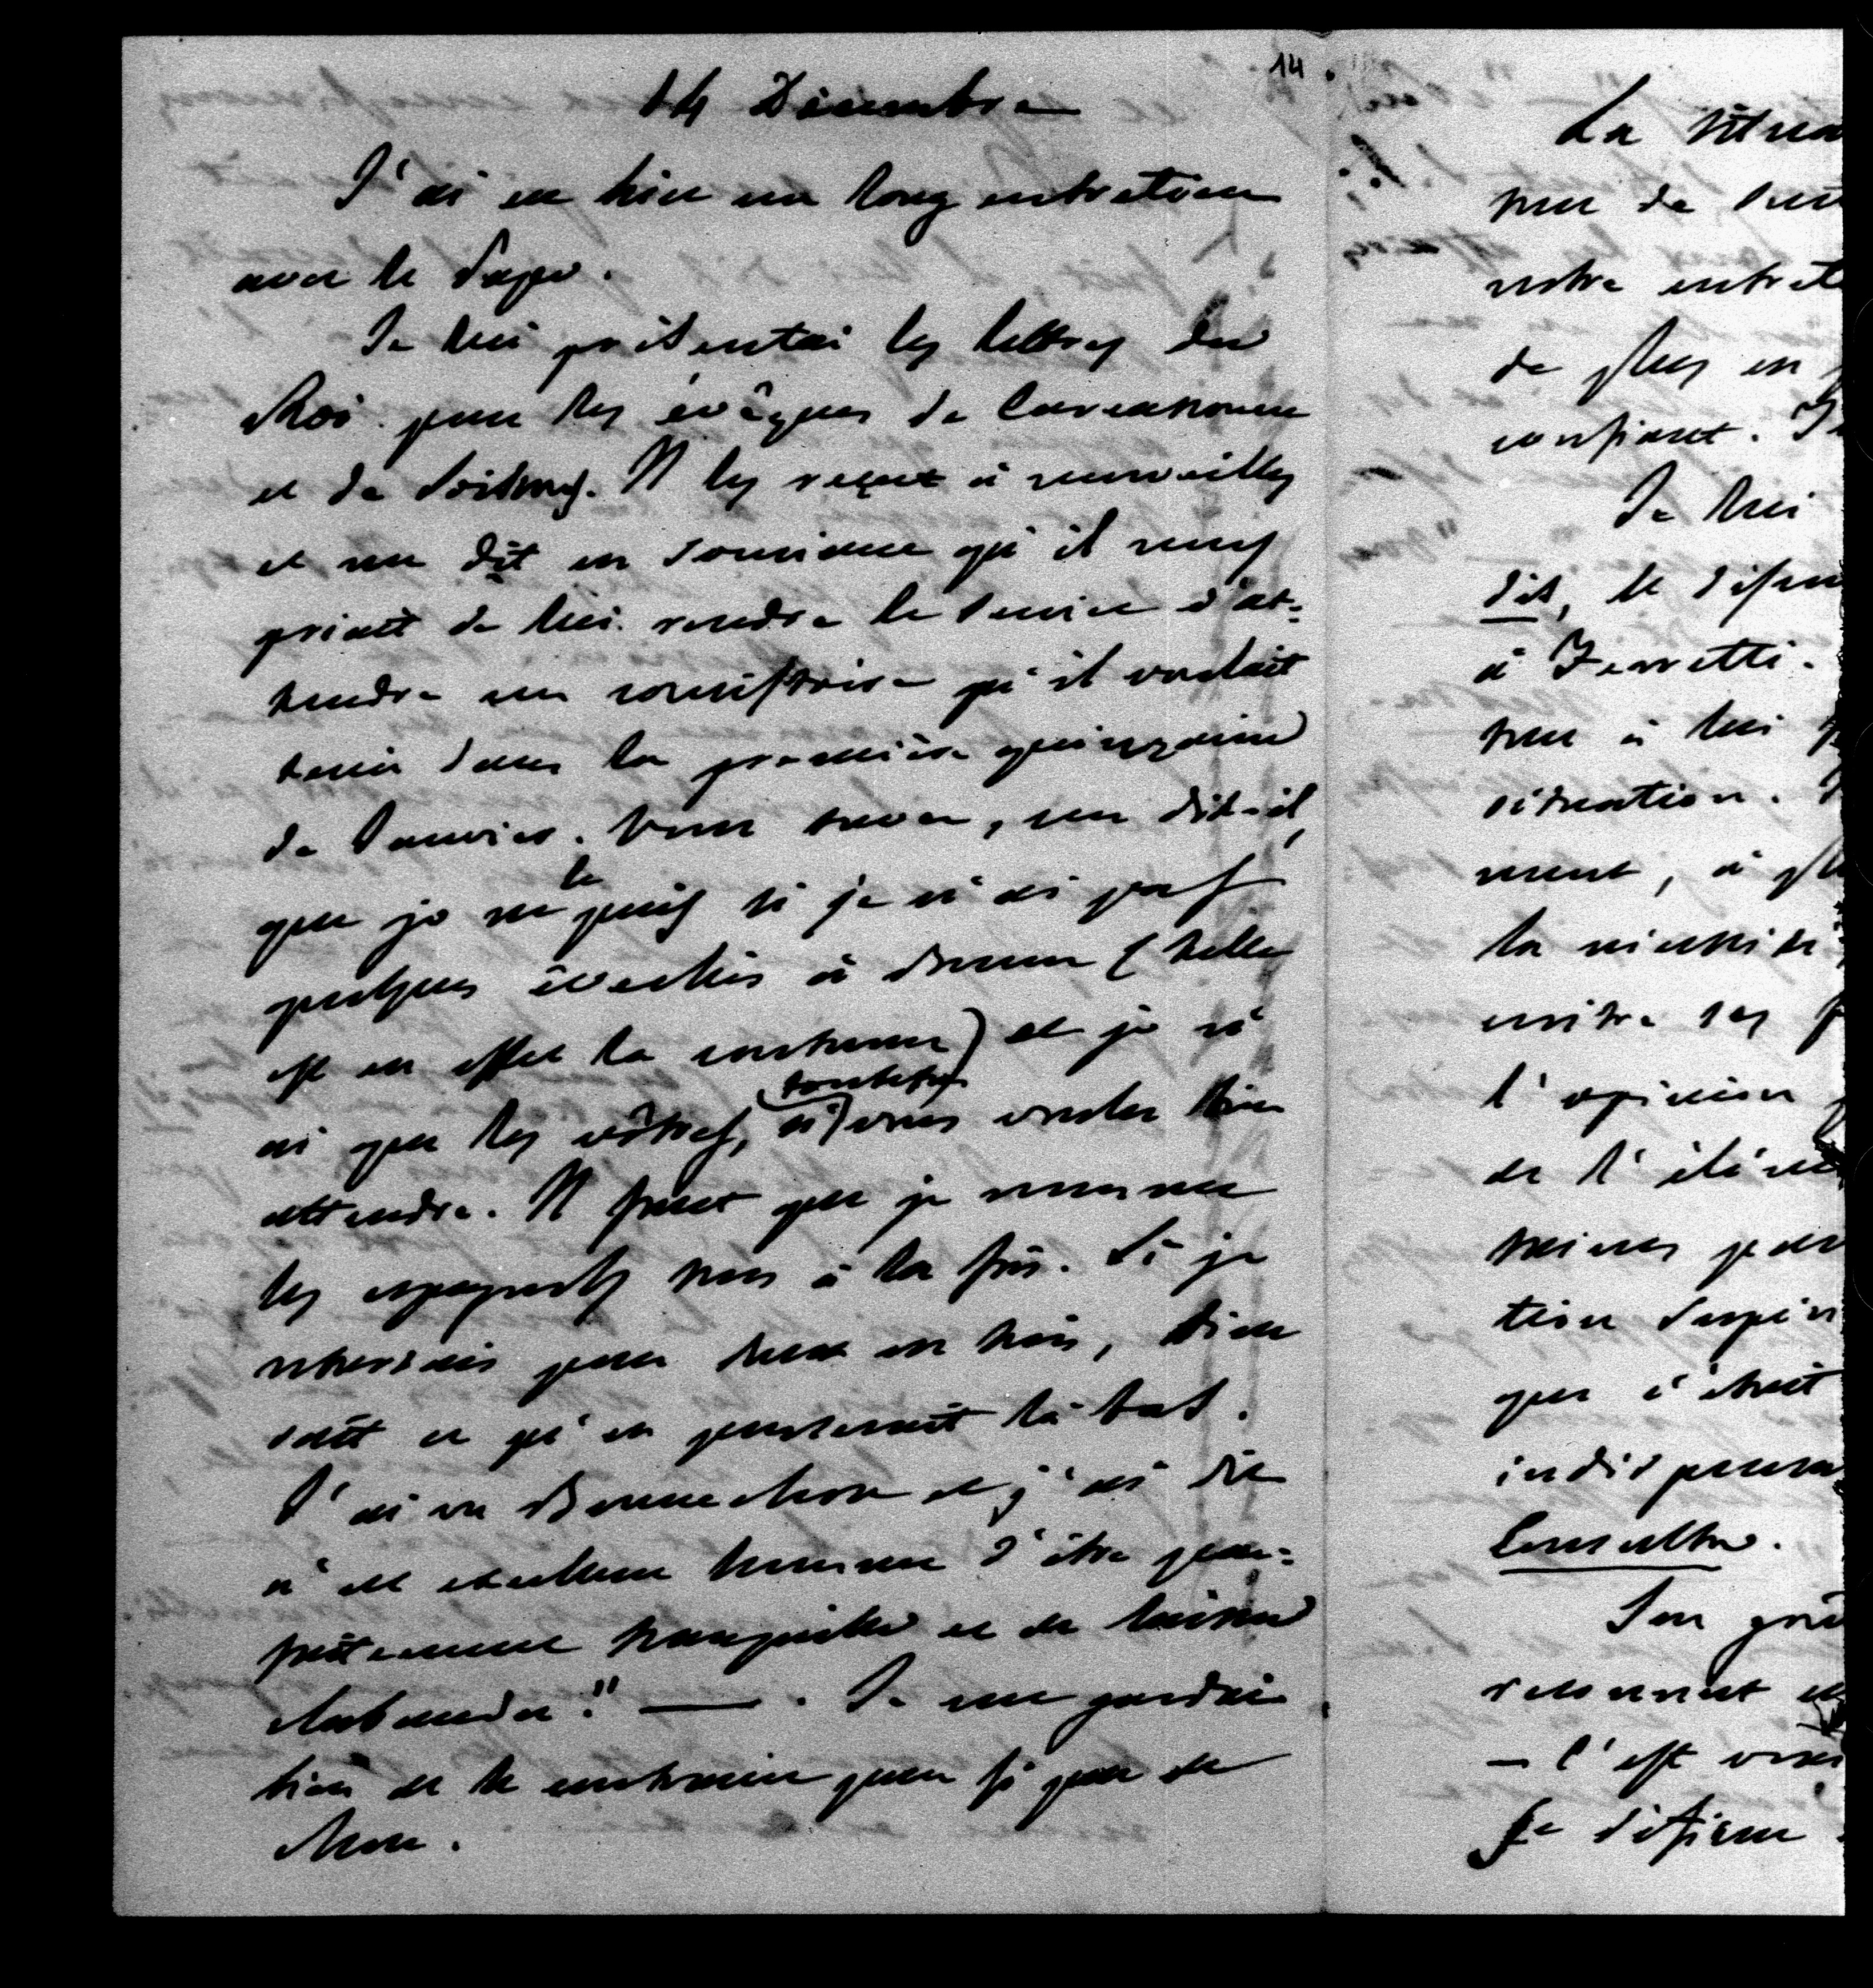 14
14 Décembre
J'ai eu hier un long entretien
avec le Pape.
Je lui présentai les lettres du
Roi pour les évêques de Carcassonne
et de Soissons. Il les reçut à merveilles
et me dit en souriant qu'il nous
priait de lui rendre le service d'at-
tendre un consistoire qu'il voulait
tenir dans la première quinzaine
de Janvier. Vous savez, me dit-il,
que je ne le puis si je n'ai pas
quelques évêchés à donner (telle
est en effet la coutume) et je n'
ai que les vôtres, si toutefois vous voulez bien
attendre. Il faut que je nomme
les espagnols tous à la fois. Si je
nommais pour deux ou trois, Dieu
sait ce qu'on penserait là bas.
J'ai vu Bonnechose et j'ai dit
à cet excellent homme d'être par-
faitement tranquille et de laisser
clabauder." — . Je me gardai
bien de le contrarier pour si peu de
chose.
La situa
peu de
notre entret
de plus en
confiant. J
Je lui
dit, le
à Ferretti.
peu à lui
situation.
ment, à pl
la nécessité
entre ses
l'opinion
de l'élé
moines par
tion
que c'était
indispensa
Consulte.
Son
reconnut
— C'est vrai
Je